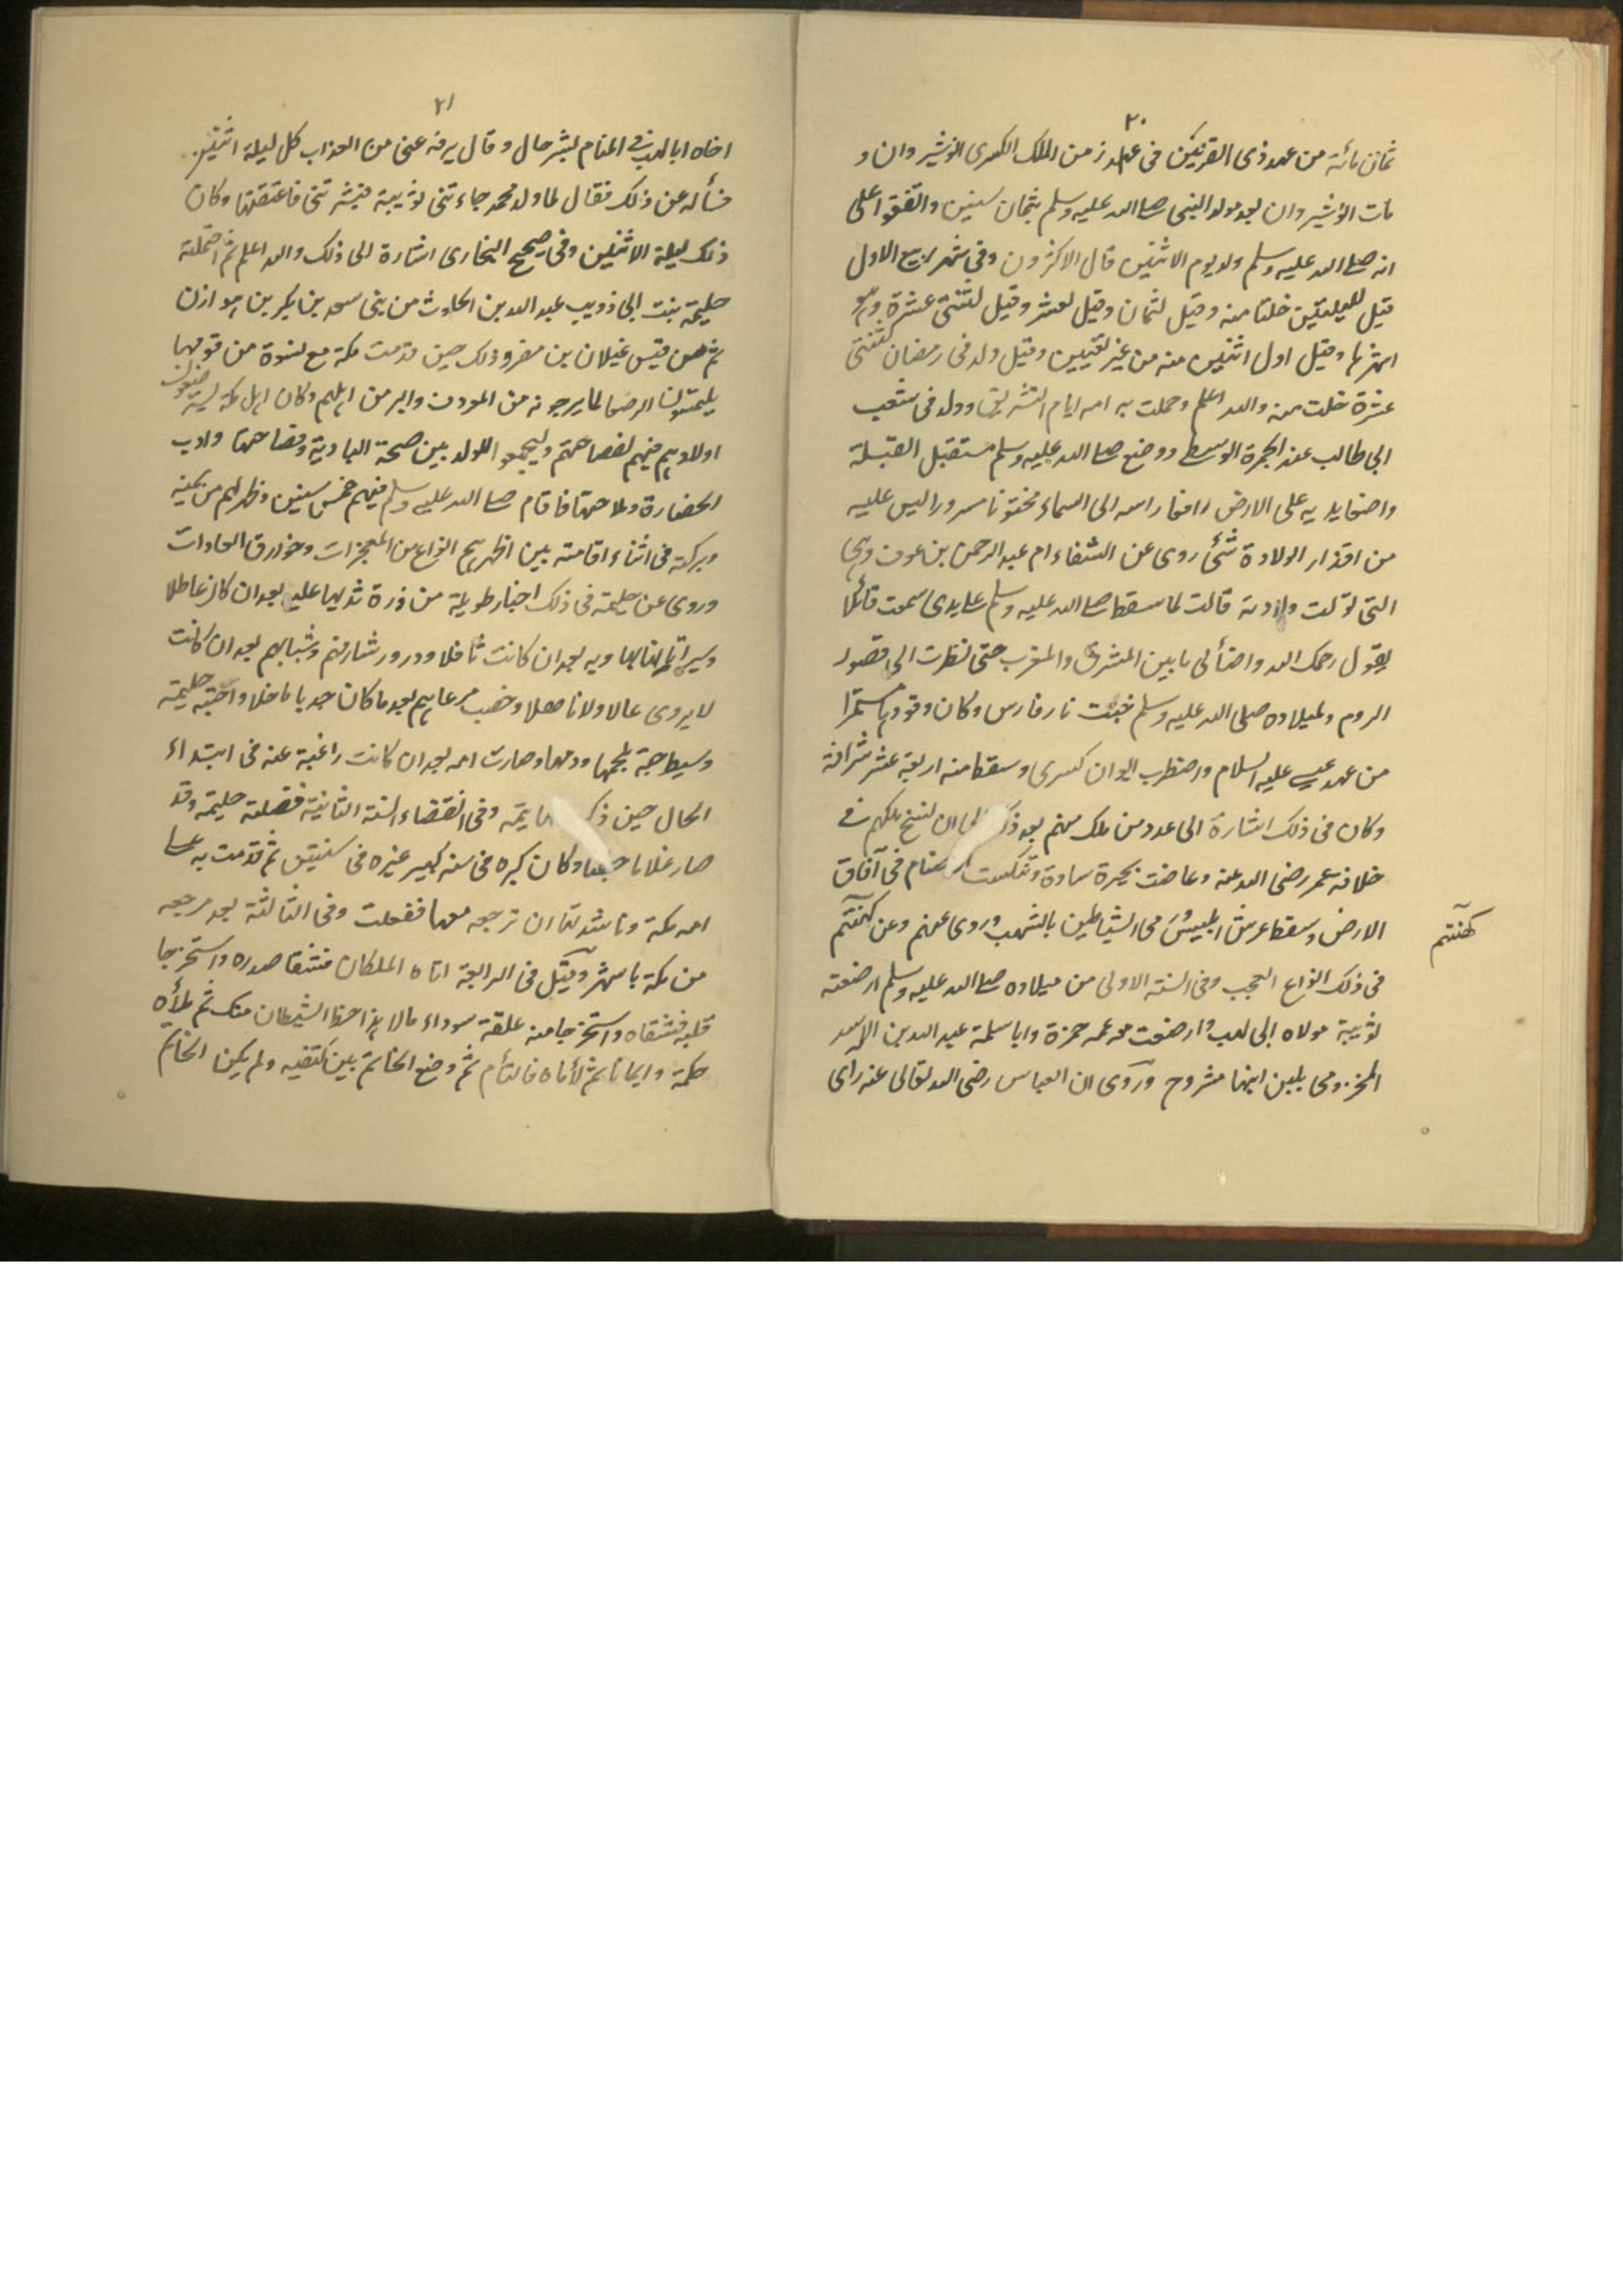 ٢٠
ثمان مائة من عهد ذى القرنين فى زمن الملك الكسرى انوشيروان و
مات انوشيروان بعد مولد النبى صلى الله عليه وسلم بثمان سنين واتفقوا على
انه صلى الله عليه وسلم ولد يوم الاثنين قال الاكثرون وفى شهر ربيع الاول
قيل لليلتين خلتا منه وقيل لثمان وقيل لعشر وقيل لثنتى عشرة وهو
اشهرها وقيل اول اثنين منه من غير تعيين وقيل ولد فى رمضان لثنتى
عشرة خلت منه والله اعلم وحملت به امه ايام التشريق وولد فى شعب
ابى طالب عند الجمرة الوسطى ووضع صلى الله عليه وسلم مستقبل القبلة
واضعا يديه على الارض رافعا راسه الى السماء مختونا مسرورا ليس عليه
من اقذار الولادة شئ روى عن الشفاء ام عبد الرحمن بن عوف وهى
التى تولت ولادته قالت لما سقط صلى الله عليه وسلم على يدى سمعت قائلا
يقول رحمك الله واضأ لى ما بين المشرق والمغرب حتى نظرت الى قصور
الروم ولميلاده صلى الله عليه وسلم خبت نار فارس وكان وقودها مستمرا
من عهد عيسى عليه السلام واضطرب ايوان كسرى وسقط منه اربعة عشر شرافة
وكان فى ذلك اشارة الى عدد من ملك منهم بعد ذلك الى ان نسخ ملكهم فى
خلافة عمر رضى الله عنه وغاضت بحيرة ساوة وتنكست الاصنام فى آفاق
الارض وسقط عرش ابليس ومى الشياطين بالشهب وروى عنهم وعن كهنتهم
كهنتهم
فى ذلك انواع العجب وفى السنة الاولى من ميلاده صلى الله عليه وسلم ارضعته
ثويبة مولاه ابى لهب وارضعت معه عمه حمزة وابا سلمة عبد الله بن الاسد
المخزومى بلبن ابنها مشروح وروى ان العباس رضى الله تعالى عنه راى
٢١
اخاه ابا لهب فى المنام بشر حال وقال يرفه عنى من العذاب كل ليلة اثنين
فسأله عن ذلك فقال لما ولد محمد جاءتنى ثويبة فبشرتنى فاعتقتها وكان
ذلك ليلة الاثنين وفى صحيح البخارى اشارة الى ذلك والله اعلم ثم احتملته
حليمة بنت ابى ذويب عبد الله بن الحارث من بنى سعد بن بكر بن هوازن
ثم من قيس غيلان بن مضر وذلك حين قدمت مكة مع نسوة من قومها
يلتمسون الرضعا لما يرجونه من المعروف والبر من اهلهم وكان اهل مكة يسترضعون
اولادهم فيهم لفصاحتهم وليجمعوا للولد بين صحة البادية وفصاحتها وادب
الحضارة وملاحتها فاقام صلى الله عليه وسلم فيهم خمس سنين وظهر لهم من يمنه
وبركته فى اثناء اقامته بين اظهرهم انواع من المعجزات وخوارق العادات
وروى عن حليمة فى ذلك اخبار طويلة من درة ثديها عليه بعد ان كان عاطلا
وسير اتانها به بعد ان كانت ثاقلا ودرور شارفهم وشياههم بعد ان كانت
لا يروى عالا ولا ناهلا وخصب مرعاهم بعد ما كان جدبا ماحلا واحبته حليمة
وسيط حبه بلحمها ودمها وصارت امه بعد ان كانت راغبة عنه فى ابتداء
الحال حين ذكر يتمه وفى انقضاء السنة الثانية فصلته حليمة وقد
صار غلاما جفرا وكان كبره فى سنه كبير غيره فى سنتين ثم قدمت به على
امه مكة وناشدتها ان ترجعه معها ففعلت وفى الثالثة بعد مرجعه
من مكة باشهر وقيل فى الرابعة اتاه الملكان فشقا صدره واستخرجا
قلبه فشقاه واستخرجا منه علقة سوداء قالا هذا حظ الشيطان منك ثم ملأه
حكمة وايمانا ثم لأماه فالتأم ثم وضع الخاتم بين كتفيه ولم يكن الخاتم